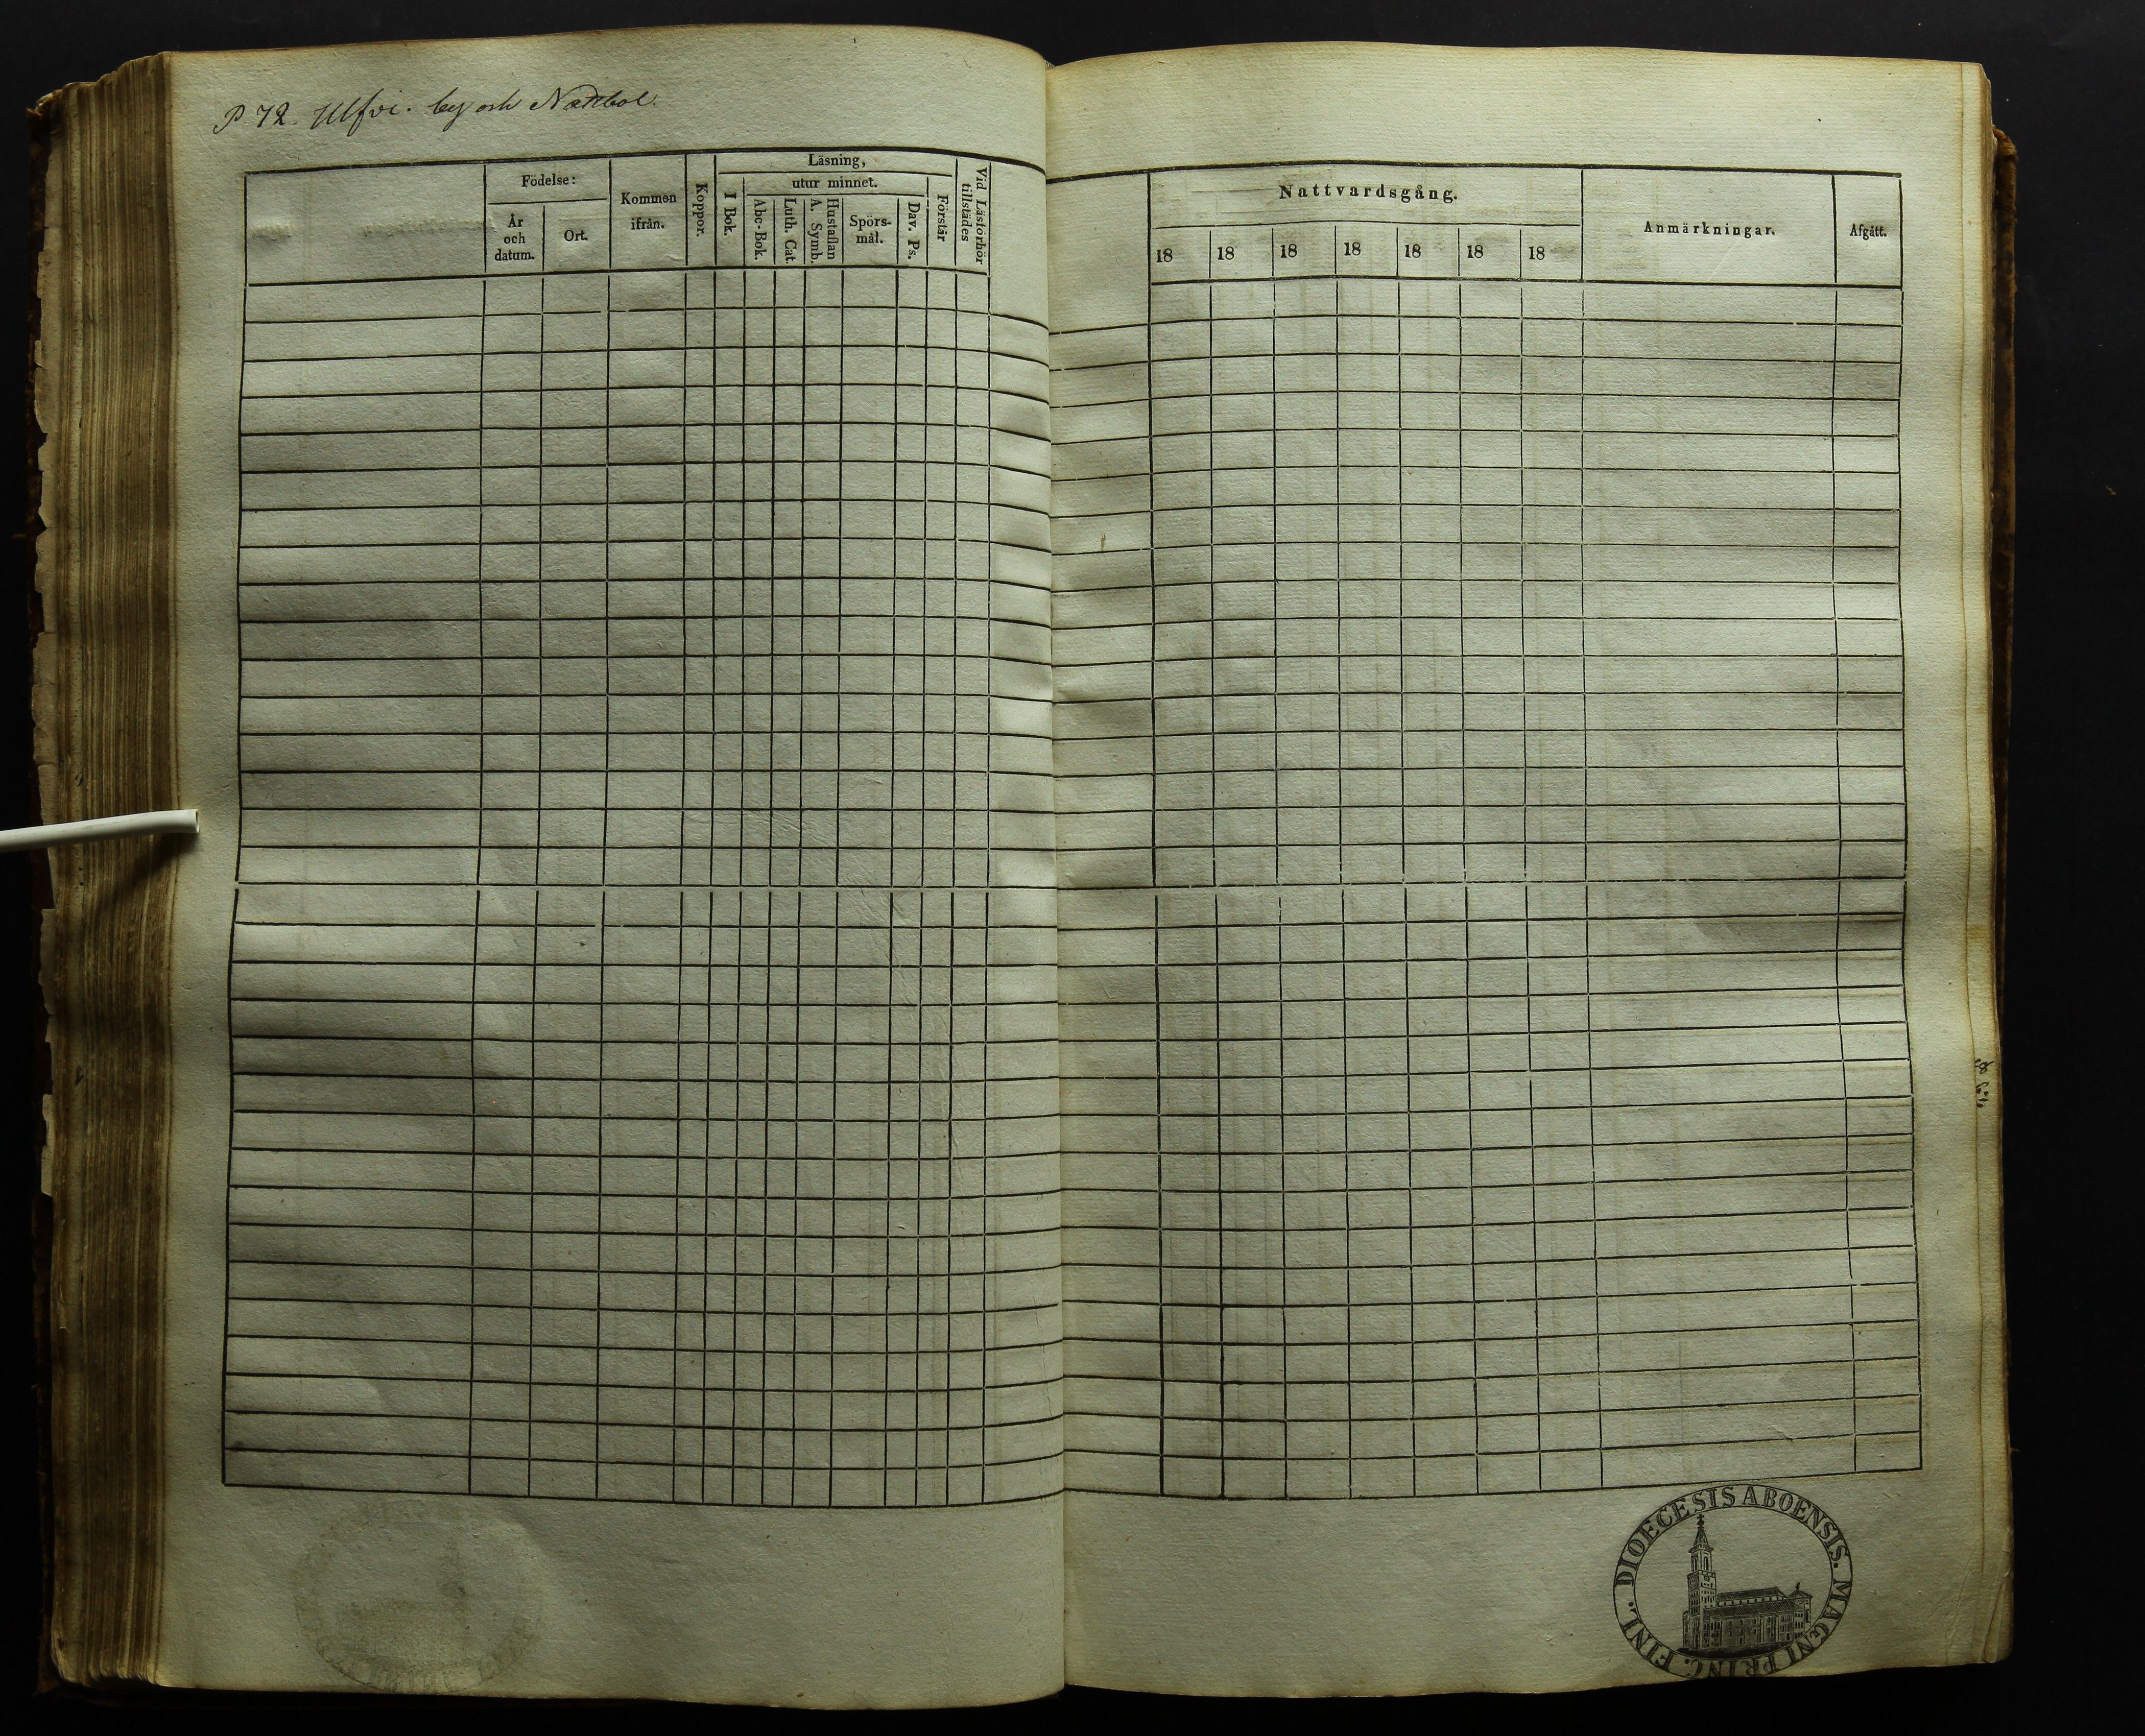 P 72. Ulfvi. by och Nättbol.
Läsning,
Födelse:
utur minnet.
Kommen ifrån.
Koppor.
I Bok.
Abc-Bok.
Luth. Cat.
Hustaflan
A. Symb.
Spörs-
mål.
Dav. Ps.
Förstår
Vid Läsförhör
tillstädes
År
och
datum.
Ort.
Nattvardsgång.
Anmärkningar.
Afgått.
18 18 18 18 18 18 18
DIOECESIS ABOENSIS. MAGNI PRINC. FINL.